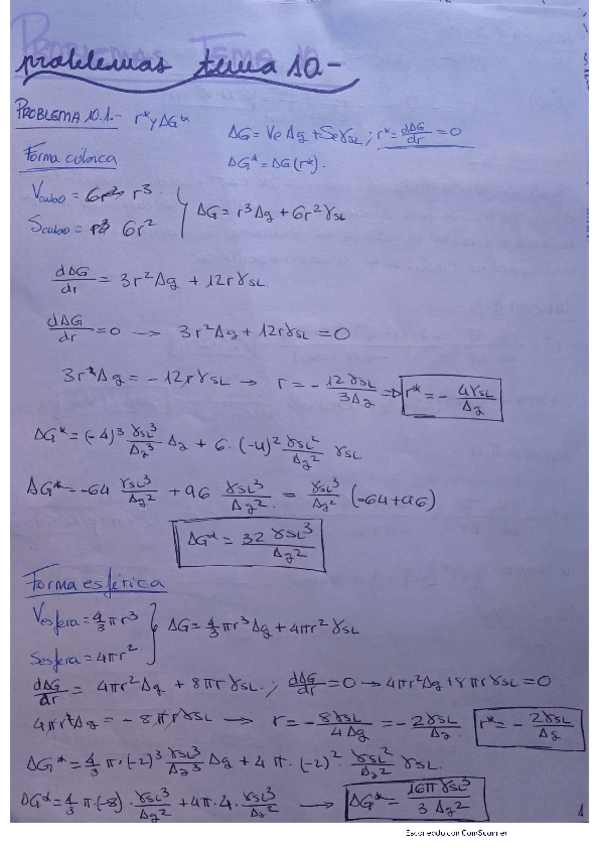 PROBLEMAS TEMA 10
problemas tema 10.-
PROBLEMA 10.1.- r* y ΔG*
ΔG = Ve Δg + Se γSL ; r* = dΔG/dr = 0
Forma cúbica
ΔG* = ΔG(r*).
Vcubo = 6r² r³
Scubo = r³ 6r²
ΔG = r³Δg + 6r²γSL
dΔG/dr = 3r²Δg + 12rγSL
dΔG/dr = 0 → 3r²Δg + 12rγSL = 0
3r²Δg = -12rγSL → r = - 12γSL/3Δg ⇒ r* = - 4γSL/Δg
ΔG* = (-4)³ γSL³/Δg³ Δg + 6·(-4)² γSL²/Δg² γSL
ΔG* = -64 γSL³/Δg² + 96 γSL³/Δg² = γSL³/Δg² (-64+96)
ΔG* = 32 γSL³/Δg²
Forma esférica
Vesfera = 4/3 π r³
Sesfera = 4πr²
ΔG = 4/3 πr³Δg + 4πr²γSL
dΔG/dr = 4πr²Δg + 8πrγSL ; dΔG/dr = 0 → 4πr²Δg + 8πrγSL = 0
4πr²Δg = -8πrγSL → r = - 8γSL/4Δg = - 2γSL/Δg. r* = - 2γSL/Δg
ΔG* = 4/3 π·(-2)³ γSL³/Δg³ Δg + 4π·(-2)²· γSL²/Δg² γSL.
ΔG* = 4/3 π·(-8)· γSL³/Δg² + 4π·4· γSL³/Δg² → ΔG* = 16πγSL³/3Δg²
1
Escaneado con CamScanner